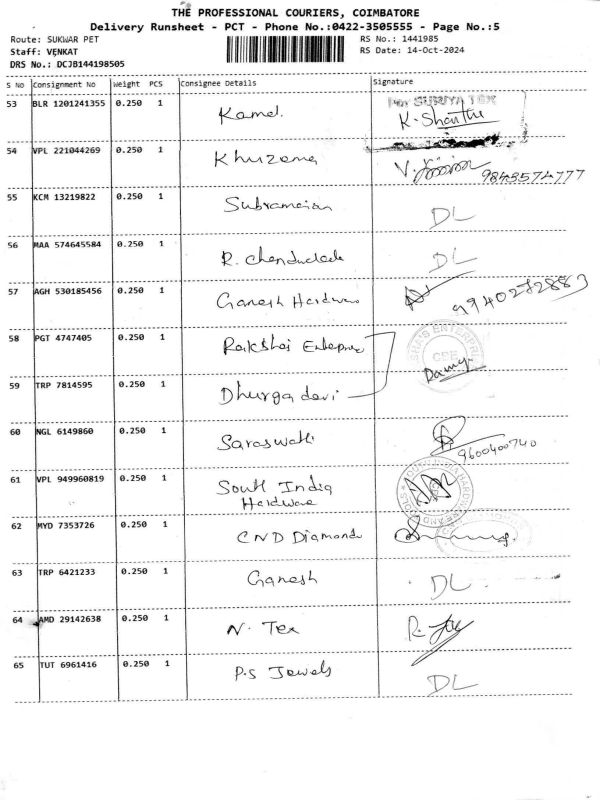 THE PROFESSIONAL COURIERS, COIMBATORE
Delivery Runsheet - PCT - Phone No.:0422-3505555 - Page No.:5
Route: SUKWAR PET RS No.: 1441985
Staff: VENKAT RS Date: 14-Oct-2024
DRS No.: DCJB144198505
S No Consignment No Weight PCS Consignee Details Signature
53 BLR 1201241355 0.250 1 Kamal. For SURIYA TEX
K. Shanthi
54 VPL 221044269 0.250 1 Khuzema 9843574777
55 KCM 13219822 0.250 1 DL
56 MAA 574645584 0.250 1 R. DL
57 AGH 530185456 0.250 1 Ganesh Hardware 9940272883
58 PGT 4747405 0.250 1 Enterprises
59 TRP 7814595 0.250 1 Dhurga devi
60 NGL 6149860 0.250 1 Saraswathi 9600400740
61 VPL 949960819 0.250 1 South India
Hardware
62 MYD 7353726 0.250 1 CND Diamonds
63 TRP 6421233 0.250 1 Ganesh DL
64 AMD 29142638 0.250 1 N. Tex
65 TUT 6961416 0.250 1 P.S Jewels DL